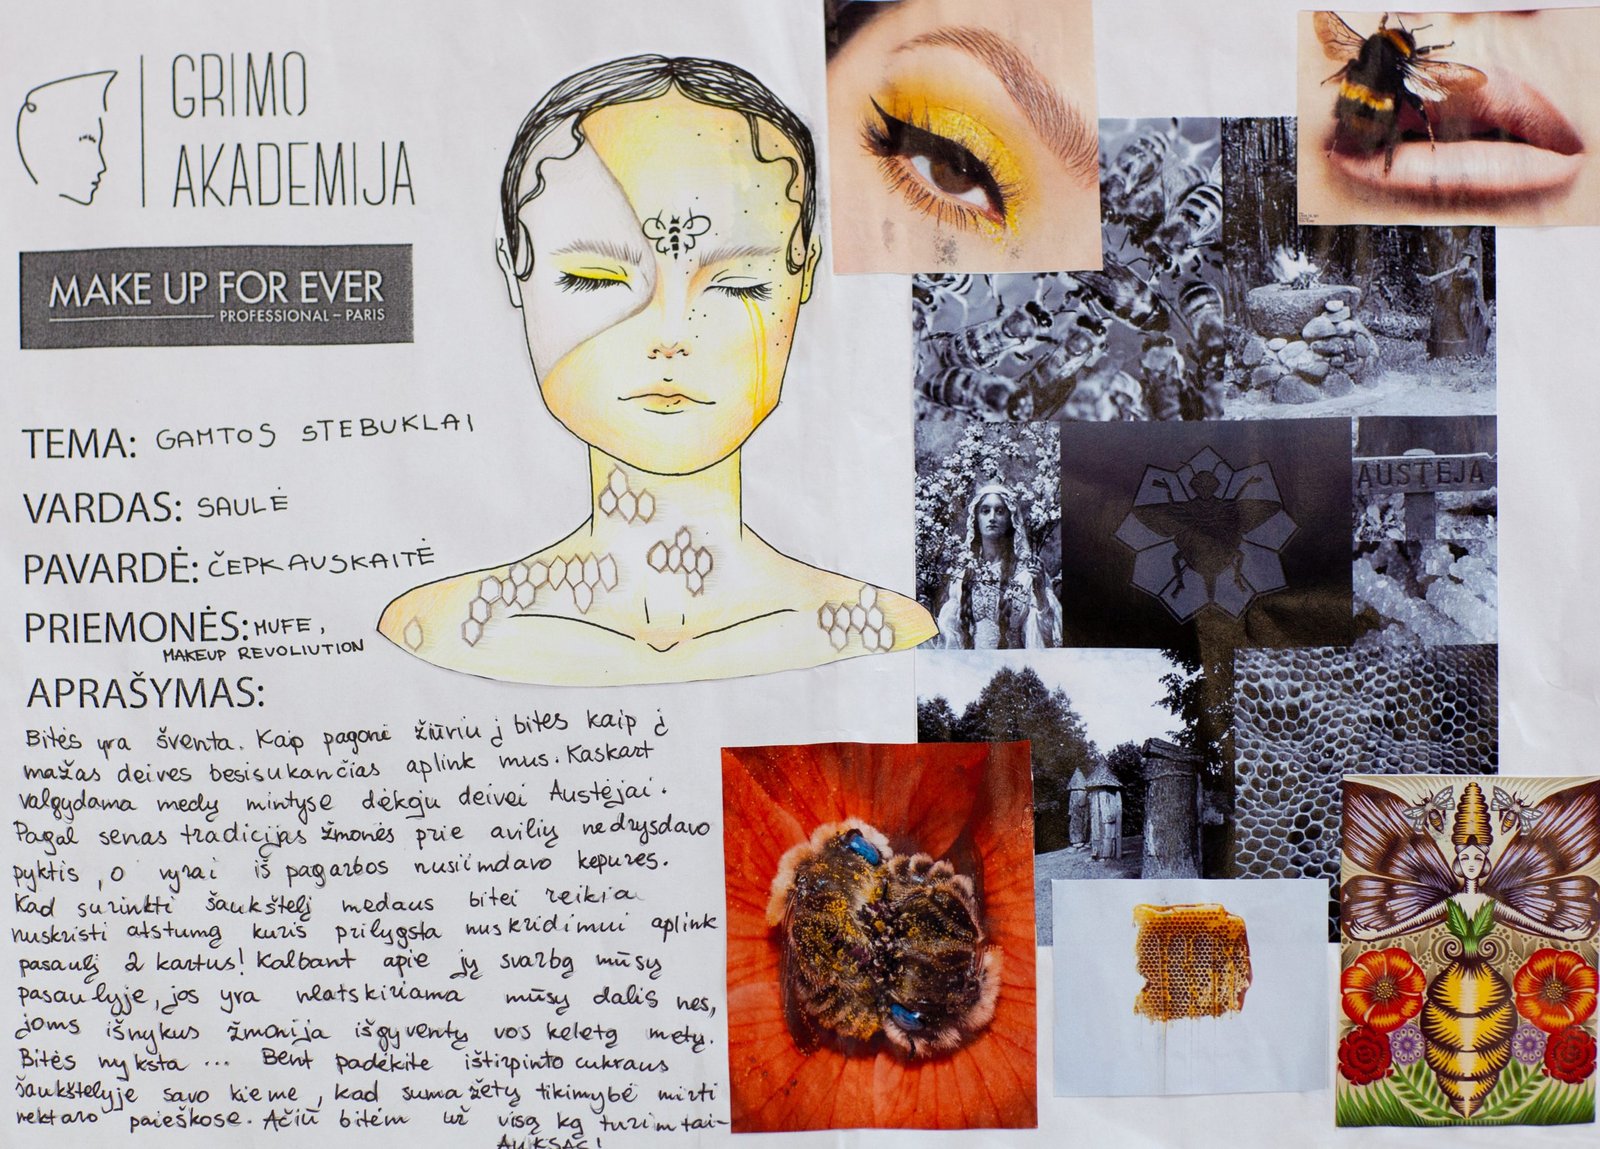 GRIMO
AKADEMIJA
MAKE UP FOR EVER
PROFESSIONAL – PARIS
TEMA: GAMTOS STEBUKLAI
VARDAS: SAULĖ
PAVARDĖ: ČEPKAUSKAITĖ
PRIEMONĖS: MUFE,
MAKEUP REVOLIUTION
APRAŠYMAS:
Bitės yra šventa. Kaip pagonė žiūriu į bites kaip į
mažas deives besisukančias aplink mus. Kaskart
valgydama medų mintyse dėkoju deivei Austėjai.
Pagal senas tradicijas žmonės prie avilių nedrysdavo
pyktis, o vyrai iš pagarbos nusiimdavo kepures.
Kad surinkti šaukštelį medaus bitei reikia
nuskristi atstumą kuris prilygsta nuskridimui aplink
pasaulį 2 kartus! Kalbant apie jų svarbą mūsų
pasaulyje, jos yra neatskiriama mūsų dalis nes,
joms išnykus žmonija išgyventų vos keletą metų.
Bitės nyksta ... Bent padėkite ištirpinto cukraus
šaukštelyje savo kieme, kad sumažėtų tikimybė mirti
nektaro paieškose. Ačiū bitėm už visą ką turim tai-
AUKSAS!
AUSTĖJA